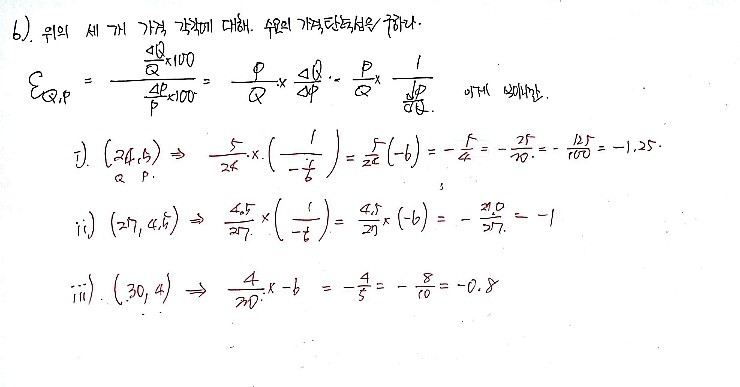 b). 위의 세 개 가격 각각에 대해. 수요의 가격탄력성을 구하라.
ε_{Q,P} = \frac{\frac{ΔQ}{Q}×100}{\frac{ΔP}{P}×100} = \frac{P}{Q} × \frac{ΔQ}{ΔP} = \frac{P}{Q} × \frac{1}{\frac{dP}{dQ}}
i). (24, 5) ⇒ \frac{5}{24} × (\frac{1}{-\frac{1}{6}}) = \frac{5}{24}(-6) = -\frac{5}{4} = -\frac{25}{20} = -\frac{125}{100} = -1.25.
Q P.
ii) (27, 4.5) ⇒ \frac{4.5}{27} × (\frac{1}{-\frac{1}{6}}) = \frac{4.5}{27} × (-6) = -\frac{27.0}{27} = -1
iii). (30, 4) ⇒ \frac{4}{30} × -6 = -\frac{4}{5} = -\frac{8}{10} = -0.8